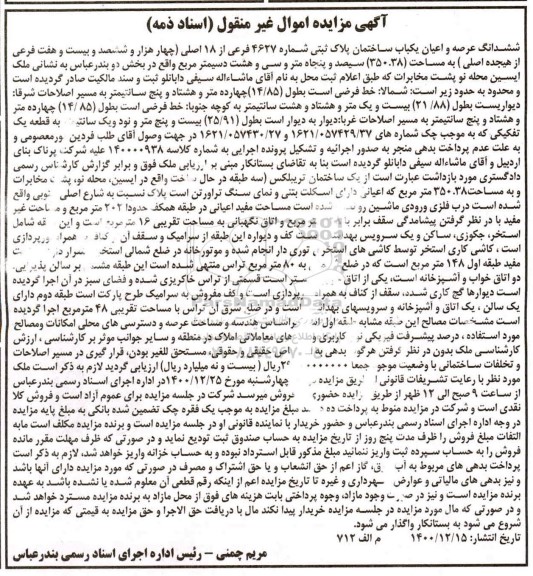 آگهی مزایده اموال غیر منقول (اسناد ذمه)
ششدانگ عرصه و اعیان یکباب ساختمان پلاک ثبتی شماره ۴۶۲۷ فرعی از ۱۸ اصلی (چهار هزار و ششصد و بیست و هفت فرعی
از هیجده اصلی ) به مساحت (۳۵۰.۳۸) سیصد و پنجاه متر و سی و هشت دسیمتر مربع واقع در بخش دو بندرعباس به نشانی ملک
ایسین محله نو پشت مخابرات که طبق اعلام ثبت محل به نام آقای ماشاءاله سیفی دابانلو ثبت و سند مالکیت صادر گردیده است
و محدود به حدود زیر است: شمالا: خط فرضی است بطول (۱۴/۸۵)چهارده متر و هشتاد و پنج سانتیمتر به مسیر اصلاحات شرقا:
دیواریست بطول (۲۱/۸۸) بیست و یک متر و هشتاد و هشت سانتیمتر به کوچه جنوبا: خط فرضی است بطول (۱۴/۸۵) چهارده متر
و هشتاد و پنج سانتیمتر به مسیر اصلاحات غربا:دیوار به دیوار است بطول (۲۵/۹۱) بیست و پنج متر و نود ویک سانتیمتر به قطعه یک
تفکیکی که به موجب چک شماره های ۱۶۲۱/۰۵۷۴۲۹/۳۷ و ۱۶۲۱/۰۵۷۴۳۰/۲۷ در جهت وصول آقای طلب فردین پورمعصومی و
به علت عدم پرداخت بدهی منجر به صدور اجرائیه و تشکیل پرونده اجرایی به شماره کلاسه ۱۴۰۰۰۰۹۳۸ علیه شرکت پرناک بنای
اردبیل و آقای ماشاءاله سیفی دابانلو گردیده است بنا به تقاضای بستانکار مبنی بر ارزیابی ملک فوق و برابر گزارش کارشناس رسمی
دادگستری مورد بازداشت عبارت است از یک ساختمان تریپلکس (سه طبقه در حال ساخت واقع در ایسین، محله نو، پشت مخابرات
و به مساحت۳۵۰.۳۸ متر مربع که اعیانی دارای اسکلت بتنی و نمای سنگ تراورتن است پلاک نسبت به شارع اصلی جنوبی واقع
شده است درب فلزی ورودی ماشین رو نصب شده است مساحت مفید اعیانی در طبقه همکف حدودا ۲۰۲ متر مربع و مساحت غیر
مفید با در نظر گرفتن پیشامدگی سقف برابر متر مربع و اتاق نگهبانی به مساحت تقریبی ۱۶ متر مربع است و این طبقه شامل
استخر، جکوزی، ساکن و یک سرویس بهداشتی است کف و دیواره این طبقه از سرامیک و سقف آن کناف به همراه نورپردازی
است ، کاشی کاری استخر توسط کاشی های استخری نوری دار انجام شده و موتورخانه در ضلع شمالی استخر است
مفید طبقه اول ۱۴۸ متر مربع است که در ضلع به ۸۰ متر مربع تراس منتهی شده است این طبقه مشتمل بر سالن پذیرایی،
دو اتاق خواب و آشپزخانه است، یکی از اتاق است قسمتی از تراس خاکریزی شده و فضای سبز در آن اجرا گردیده
است دیوارها گچ کاری شده، سقف از کناف به همراه نورپردازی است کف مفروش به سرامیک طرح پارکت است طبقه دوم دارای
یک سالن ، یک اتاق و آشپزخانه و سرویسهای بهداشتی است و در ضلع شرق آن تراس با مساحت تقریبی ۴۸ مترمربع اجرا گردیده
است مشخصات مصالح این طبقه مشابه طبقه اول است براساس هندسه و مساحت عرصه و دسترسی های محلی امکانات ومصالح
مورد استفاده ، درصد پیشرفت فیزیکی نوع کاربری و های معاملاتی املاک در منطقه و سایر جوانب موثر بر کارشناسی ، ارزش
کارشناسی ملک بدون در نظر گرفتن هرگونه بدهی به حقیقی وحقوقی، مستحق للغیر بودن، قرار گیری در مسیر اصلاحات
و تخلفات ساختمانی با وضعیت موجود جمعا ریال ( بیست و نه میلیارد ریال) ارزیابی گردید لازم به ذکر است ملک
مورد نظر با رعایت تشریفات قانونی از طریق مزایده مورخ چهارشنبه مورخ ۱۴۰۰/۱۲/۲۵در اداره اجرای اسناد رسمی بندرعباس
از ساعت ۹ صبح الی ۱۲ ظهر از طریق مزایده حضوری به فروش میرسد شرکت در جلسه مزایده برای عموم آزاد است و فروش کلا
نقدی است و شرکت در مزایده منوط به پرداخت ده درصد مبلغ مزایده به موجب یک فقره چک تضمین شده بانکی به مبلغ پایه مزایده
در وجه اداره اجرای اسناد رسمی بندرعباس و حضور خریدار یا نماینده قانونی او در جلسه مزایده است و برنده مزایده مکلف است مابه
التفات مبلغ فروش را ظرف مدت پنج روز از تاریخ مزایده به حساب صندوق ثبت تودیع نماید و در صورتی که ظرف مهلت مقرر مانده
فروش را به حساب سپرده ثبت واریز ننمائید مبلغ مذکور قابل استرداد نبوده و به حساب خزانه واریز خواهد شد، لازم به ذکر است
پرداخت بدهی های مربوط به آب ، گاز اعم از حق انشعاب و یا حق اشتراک و مصرف در صورتی که مورد مزایده دارای آنها باشد
و نیز بدهی های مالیاتی و عوارض شهرداری و غیره تا تاریخ مزایده اعم از اینکه رقم قطعی آن معلوم شده یا نشده باشد به عهده
برنده مزایده است و نیز در صورت وجود مازاد، وجوه پرداختی بابت هزینه های فوق از محل مازاد به برنده مزایده مسترد خواهد شد
و در صورتی که مال مورد مزایده در جلسه مزایده خریدار پیدا نکند مال با دریافت حق الاجرا و حق مزایده به قیمتی که مزایده از آن
شروع می شود به بستانکار واگذار می شود.
تاریخ انتشار: ۱۴۰۰/۱۲/۱۵ م الف ۷۱۲
مریم چمنی – رئیس اداره اجرای اسناد رسمی بندرعباس